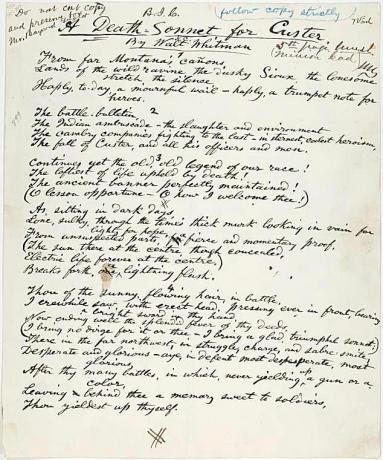 Do not cut copy
and preserve it for
Mr. Bayard
B. I. C.
follow copy strictly
Wed
A Death-Sonnet for Custer
By Walt Whitman
5th page
minion lead
From far Montana's cañons
Lands of the wild ravine, the dusky Sioux, the lonesome
stretch, the silence,
Haply, to-day, a mournful wail - haply, a trumpet note for
heroes.
2
The battle-bulletin,
The Indian ambuscade - the slaughter and environment
The cavalry companies fighting to the last - in sternest, coolest heroism,
The fall of Custer, and all his officers and men.
3
Continues yet the old, old legend of our race!
The loftiest of life upheld by death!
The ancient banner perfectly maintained!
(O lesson opportune - O how I welcome thee!)
As, sitting in dark days,
Lone, sulky, through the time's thick murk looking in vain for
light, for hope,
From unsuspected parts, a fierce and momentary proof,
(The sun there at the centre though concealed,
Electric life forever at the centre,)
Breaks forth, a lightning flash.
4
Thou of the sunny, flowing hair, in battle,
I erewhile saw, with erect head, pressing ever in front, bearing
a bright sword in thy hand,
Now ending well the splendid fever of thy deeds,
(I bring no dirge for it or thee - I bring a glad triumphal sonnet;)
There in the far northwest, in struggle, charge, and sabre-smite,
Desperate and glorious - aye, in defeat most desperate, most
glorious,
After thy many battles, in which, never yielding up a gun or a
color,
Leaving behind thee a memory sweet to soldiers,
Thou yieldest up thyself.